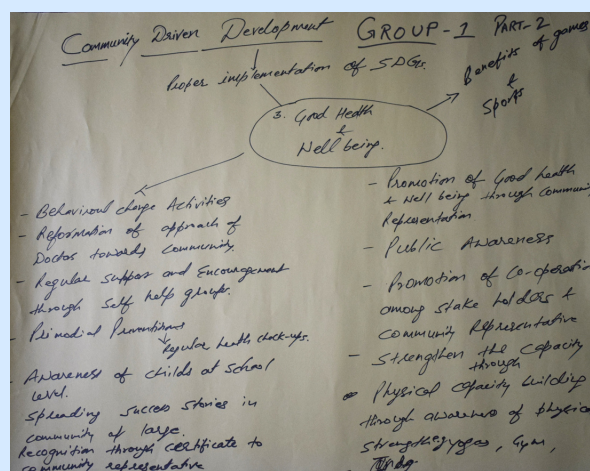 Community Driven Development GROUP-1 PART-2
Proper implementation of SDGs.
Benefits of games
&
Sports
3. Good Health
&
Well being.
- Behavioural change Activities
- Reformation of approach of
Doctor towards Community.
- Regular Support and Encouragement
through Self help groups.
- Primodial Preventions
Regular health check-ups.
- Awareness of childs at School
level.
Spreading success stories in
community at large.
Recognition through certificate to
community representative
- Promotion of Good health
& Well being through Communi
Representation
- Public Awareness
- Promotion of Co-operation
among stake holders &
community Representative
- Strengthen the Capacity
through
Physical capacity building
through awareness of physica
yoga, Gym,